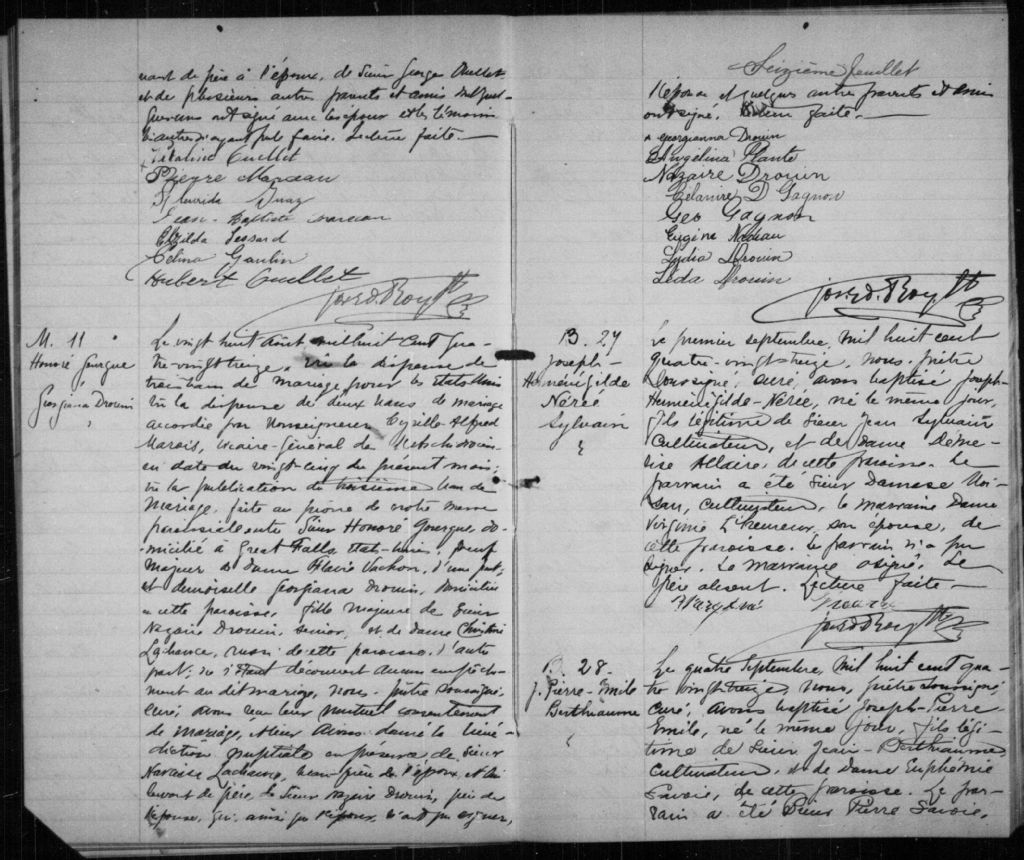 vant de père à l'époux, de Sieur George Ouellet
et de plusieurs autres parents et amis
ont signé avec les époux et les témoins
Lecture faite.
Ouellet
Pierre
Jean-Baptiste
Clzilda Lessard
Celina Gaulin
Hubert Ouellet
Jos. D. Roy Ptre
M. 11
Honoré Gourgue
&
Georgiana Drouin
Le vingt huit août mil huit cent qua-
tre-vingt treize, vu la dispense de
trois bans de mariage pour les États-Unis
vu la dispense de deux bans de mariage
accordée par Monseigneur Cyrille Alfred
Marois, vicaire-Général de l'Archidiocèse
en date du vingt-cinq du présent mois;
vu la publication du troisième ban de
mariage, faite au prône de notre messe
paroissiale entre Sieur Honoré Gourgue, do-
micilié à Great Falls États-Unis,
majeur de Dame Flavie Vachon, d'une part,
et demoiselle Georgiana Drouin, domiciliée
en cette paroisse, fille majeure de Sieur
Nazaire Drouin, senior, et de dame Christine
Lachance, aussi de cette paroisse, d'autre
part; ne s'étant découvert aucun empêche-
ment au dit mariage, nous, prêtre soussigné,
curé, avons reçu leur mutuel consentement
de mariage, et leur avons donné la béné-
diction nuptiale en présence de Sieur
Narcisse Lachance, beau-frère de l'époux, et lui
servant de père, de Sieur Nazaire Drouin, père de
l'épouse, qui, ainsi que l'époux, n'ont pu signer,
Seizième feuillet
L'épouse et quelques autres parents et amis
ont signé. Lecture faite.
Georgianna Drouin
Angélina Plante
Nazaire Drouin
Célanire D Gagnon
Geo Gagnon
Eugène Nadeau
Lydia Drouin
Léda Drouin
Jos. D. Roy Ptre
B. 27
Joseph-
Herménégilde
Nérée
Sylvain
Le premier septembre, mil huit cent
quatre-vingt treize, nous, prêtre
soussigné, curé, avons baptisé Joseph-
Herménégilde-Nérée, né le même jour,
fils légitime de Sieur Jean Sylvain
Cultivateur, et de Dame Deme-
rise Allaire, de cette paroisse. Le
parrain a été Sieur Damase
Cultivateur, la marraine Dame
Virginie L'heureux, son épouse, de
cette paroisse. Le parrain n'a pu
signer. La marraine a signé. Le
père absent. Lecture faite.
Jos. D. Roy Ptre
B. 28.
J. Pierre-Emile
Berthiaume
Le quatre Septembre, mil huit cent qua-
tre vingt-treize, Nous, prêtre soussigné,
curé, avons baptisé Joseph-Pierre
Emile, né le même jour, fils légi-
time de Sieur Jean Berthiaume,
Cultivateur, et de dame Euphémie
Savoie, de cette paroisse. Le par-
rain a été Sieur Pierre Savoie,